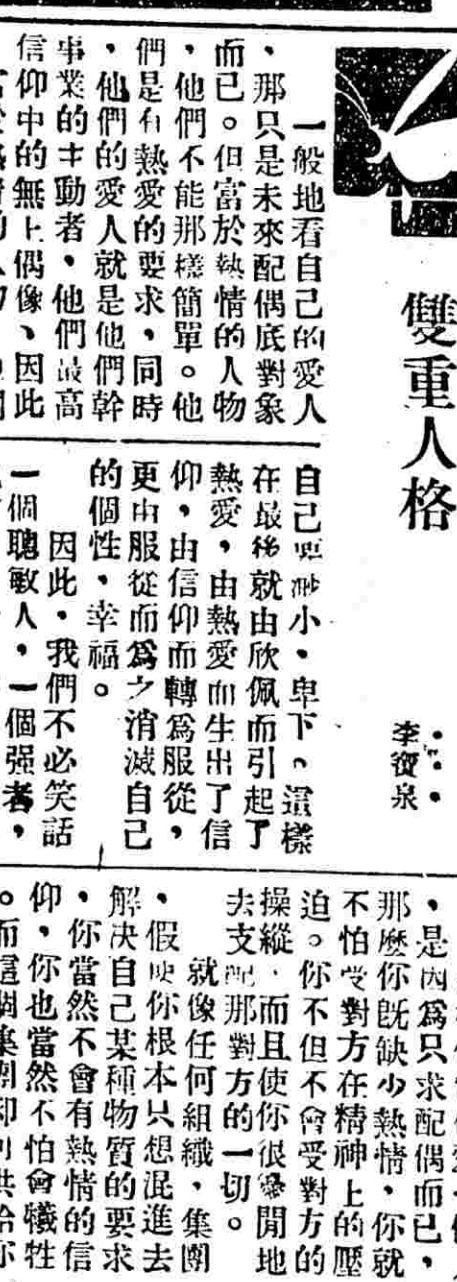 雙重人格
李寶泉
一般地看自己的愛人
、那只是未來配偶底對象
而已。但富於熱情的人物
，他們不能那樣簡單。他
們是有熱愛的要求，同時
，他們的愛人就是他們幹
事業的主動者，他們最高
信仰中的無上偶像、因此
自己更渺小、卑下。這樣
在最後就由欣佩而引起了
熱愛，由熱愛而生出了信
仰，由信仰而轉爲服從，
更由服從而爲之消滅自己
的個性、幸福。
因此，我們不必笑話
一個聰敏人，一個强者，
，是因爲只求配偶而已，
那麼你既缺少熱情，你就
不怕受對方在精神上的壓
迫。你不但不會受對方的
操縱，而且使你很舉閒地
去支配那對方的一切。
就像任何組織，集團
，假使你根本只想混進去
解決自己某種物質的要求
，你當然不會有熱情的信
仰，你也當然不怕會犧牲
。而這個集團却可供給你